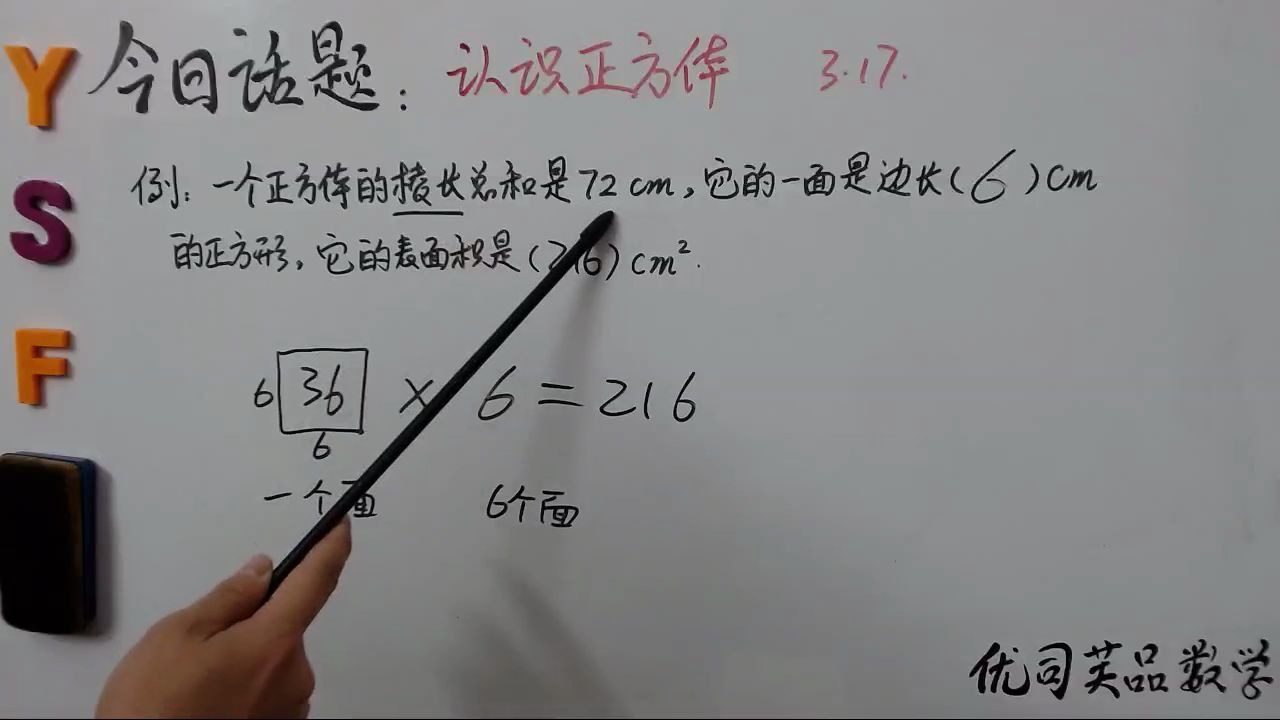 今日话题：认识正方体 3.17.
例：一个正方体的棱长总和是72cm，它的一面是边长(6)cm
的正方形，它的表面积是(216)cm².
6 36 × 6 = 216
6
一个面 6个面
Y
S
F
优司芙品数学